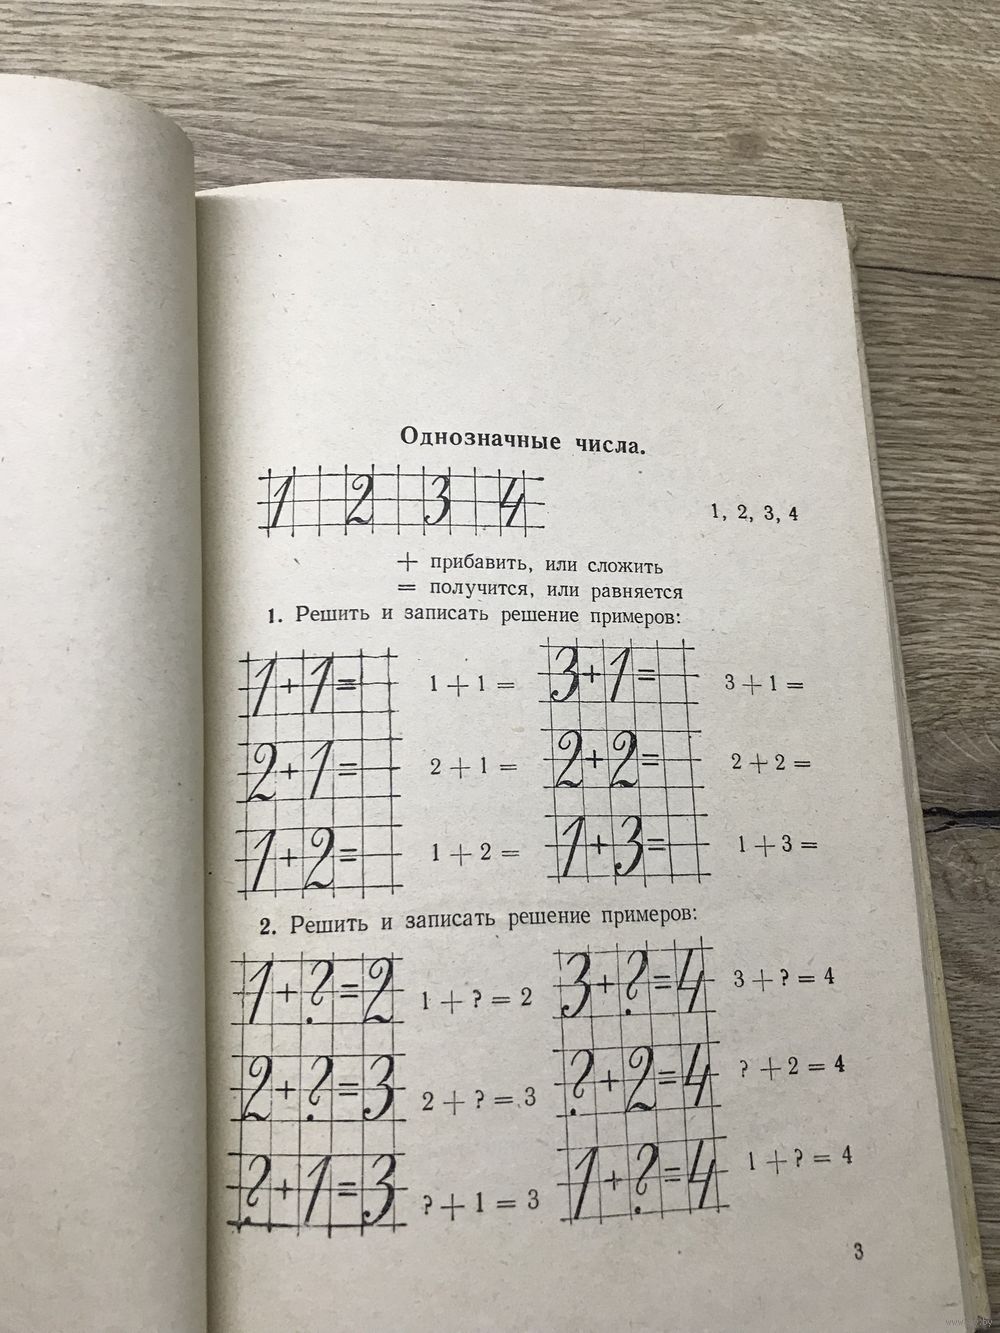 Однозначные числа.
1 2 3 4
1, 2, 3, 4
+ прибавить, или сложить
= получится, или равняется
1. Решить и записать решение примеров:
1+1= 1 + 1 = 3+1= 3 + 1 =
2+1= 2 + 1 = 2+2= 2 + 2 =
1+2= 1 + 2 = 1+3= 1 + 3 =
2. Решить и записать решение примеров:
1+?=2 1 + ? = 2 3+?=4 3 + ? = 4
2+?=3 2 + ? = 3 ?+2=4 ? + 2 = 4
?+1=3 ? + 1 = 3 1+?=4 1 + ? = 4
3